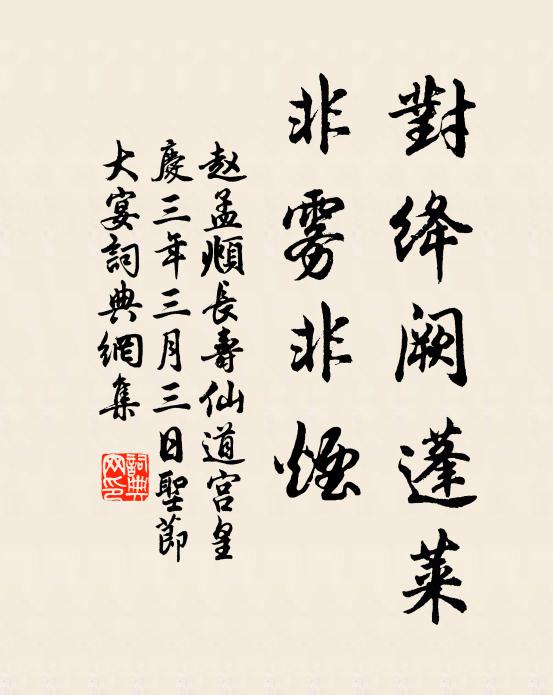 對绛阙蓬莱
非雾非煙
赵孟頫長壽仙道宫皇
慶三年三月三日聖節
大宴詞典網集
詞典
网印